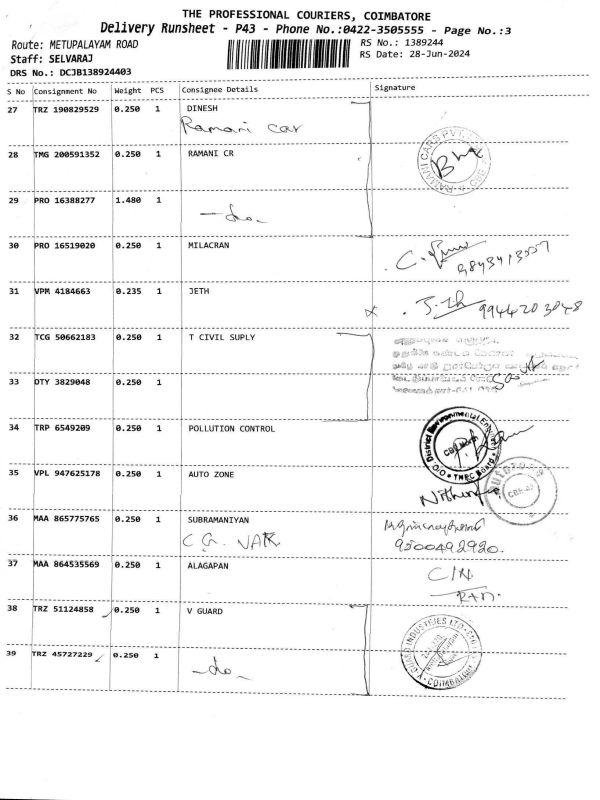 THE PROFESSIONAL COURIERS, COIMBATORE
Delivery Runsheet - P43 - Phone No.:0422-3505555 - Page No.:3
Route: METUPALAYAM ROAD
RS No.: 1389244
Staff: SELVARAJ
RS Date: 28-Jun-2024
DRS No.: DCJB138924403
S No Consignment No Weight PCS Consignee Details Signature
27 TRZ 190829529 0.250 1 DINESH
Ramani car
28 TMG 200591352 0.250 1 RAMANI CR
RAMANI CARS PVT
29 PRO 16388277 1.480 1
-do-
30 PRO 16519020 0.250 1 MILACRAN
31 VPM 4184663 0.235 1 JETH
9944203048
32 TCG 50662183 0.250 1 T CIVIL SUPLY
33 DTY 3829048 0.250 1
34 TRP 6549209 0.250 1 POLLUTION CONTROL
District Environmental
35 VPL 947625178 0.250 1 AUTO ZONE
36 MAA 865775765 0.250 1 SUBRAMANIYAN
C G. VAK
9500492920.
37 MAA 864535569 0.250 1 ALAGAPAN
38 TRZ 51124858 0.250 1 V GUARD
V-GUARD INDUSTRIES LTD
COIMBATORE
39 TRZ 45727229 0.250 1
-do-